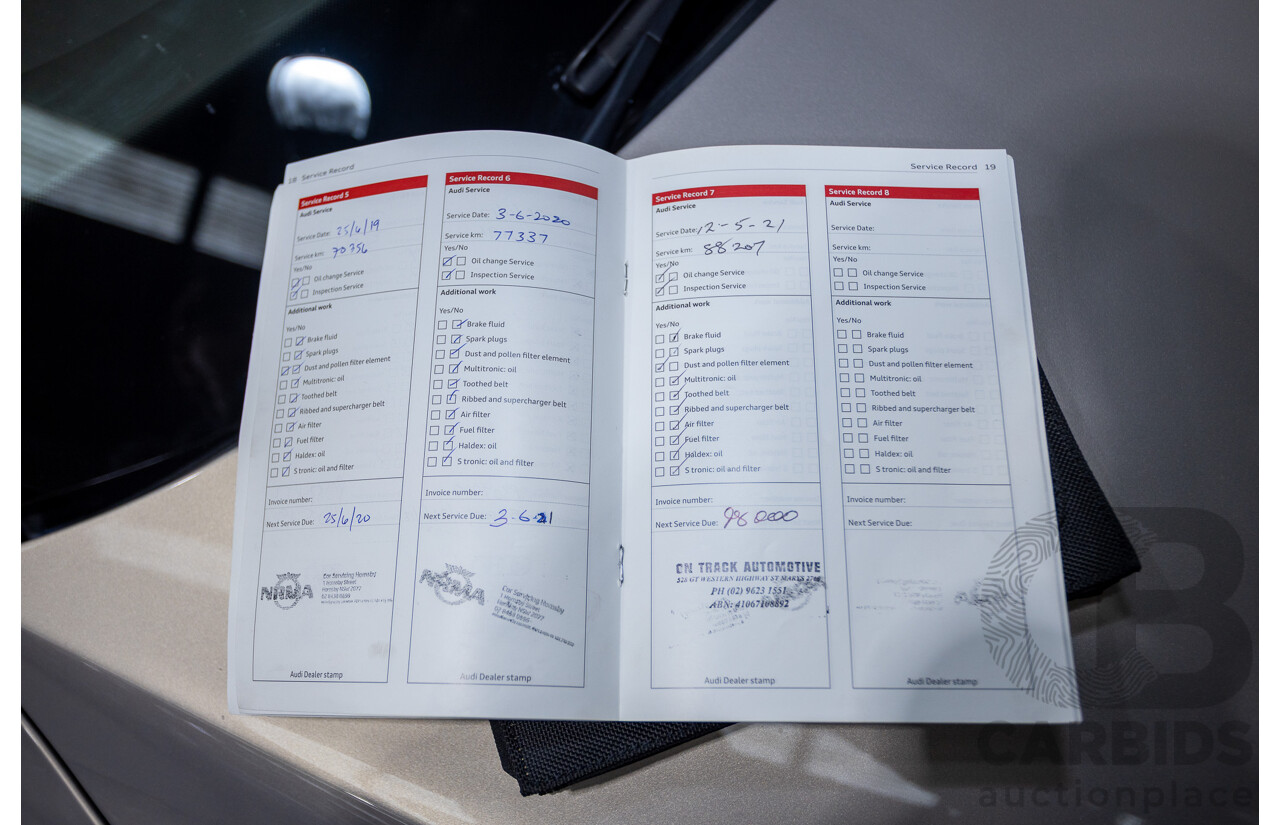 18 Service Record
Service Record 5
Audi Service
Service Date: 25/6/19
Service km: 70756
Yes/No
Oil change Service
Inspection Service
Additional work
Yes/No
Brake fluid
Spark plugs
Dust and pollen filter element
Multitronic: oil
Toothed belt
Ribbed and supercharger belt
Air filter
Fuel filter
Haldex: oil
S tronic: oil and filter
Invoice number:
Next Service Due: 25/6/20
NRMA
Car Servicing Hornsby
1 Hornsby Street
Hornsby NSW 2077
Audi Dealer stamp
Service Record 6
Audi Service
Service Date: 3-6-2020
Service km: 77337
Yes/No
Oil change Service
Inspection Service
Additional work
Yes/No
Brake fluid
Spark plugs
Dust and pollen filter element
Multitronic: oil
Toothed belt
Ribbed and supercharger belt
Air filter
Fuel filter
Haldex: oil
S tronic: oil and filter
Invoice number:
Next Service Due: 3-6-21
NRMA
Car Servicing Hornsby
1 Hornsby Street
Hornsby NSW 2077
Audi Dealer stamp
Service Record 19
Service Record 7
Audi Service
Service Date: 12-5-21
Service km: 88207
Yes/No
Oil change Service
Inspection Service
Additional work
Yes/No
Brake fluid
Spark plugs
Dust and pollen filter element
Multitronic: oil
Toothed belt
Ribbed and supercharger belt
Air filter
Fuel filter
Haldex: oil
S tronic: oil and filter
Invoice number:
Next Service Due: 98000
ON TRACK AUTOMOTIVE
528 GT WESTERN HIGHWAY ST MARYS 2760
PH (02) 9623 1551
ABN: 41067108892
Audi Dealer stamp
Service Record 8
Audi Service
Service Date:
Service km:
Yes/No
Oil change Service
Inspection Service
Additional work
Yes/No
Brake fluid
Spark plugs
Dust and pollen filter element
Multitronic: oil
Toothed belt
Ribbed and supercharger belt
Air filter
Fuel filter
Haldex: oil
S tronic: oil and filter
Invoice number:
Next Service Due:
Audi Dealer stamp
CB
CARBIDS
auctionplace